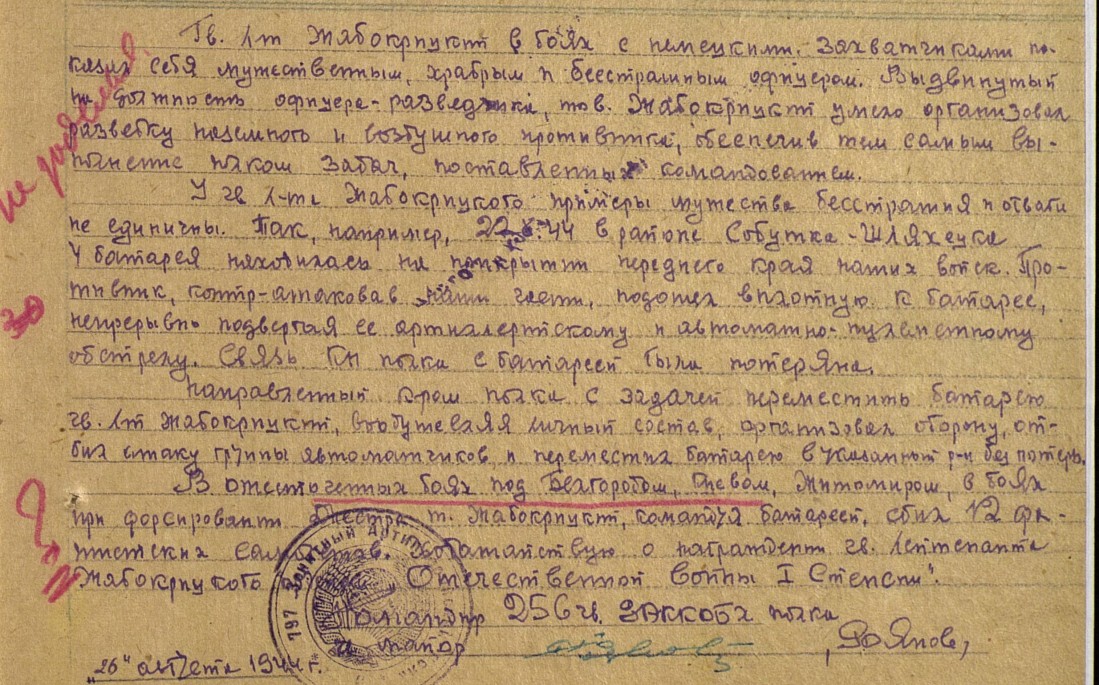 Гв. л-т Жабокрицкий в боях с немецкими захватчиками по-
казал себя мужественным, храбрым и бесстрашным офицером. Выдвинутый
на должность офицера-разведчика, тов. Жабокрицкий умело организовал
разведку наземного и воздушного противника, обеспечив тем самым вы-
полнение полком задач, поставленных командованием.
У гв. л-та Жабокрицкого примеры мужества бесстрашия и отваги
не единичны. Так, например, 22.8.44 в районе Собутка-Шляхецка
4 батарея находилась на прикрытии переднего края наших войск. Про-
тивник, контр-атаковав наши части, подошел вплотную к батарее,
непрерывно подвергая ее артиллерийскому и автоматно-пулеметному
обстрелу. Связь КП полка с батареей была потеряна.
Направленный к-ром полка с задачей переместить батарею
гв. л-т Жабокрицкий, воодушевляя личный состав, организовал оборону, от-
бил атаку группы автоматчиков и переместил батарею в указанный р-н без потерь.
В ожесточенных боях под Белгородом, Киевом, Житомиром, в боях
при форсировании Днестра т. Жабокрицкий, командуя батареей, сбил 12 фа-
шистских самолетов. Ходатайствую о награждении гв. лейтенанта
Жабокрицкого "Отечественной войны I Степени".
Командир 256 гв. полка
майор
"26" августа 1944 г.
30